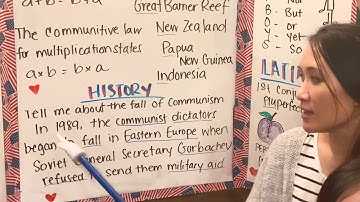 a+b = b+a
The communitive law
for multiplication states
a×b = b×a
Great Barrier Reef
New Zealand
Papua
New Guinea
Indonesia
HISTORY
Tell me about the fall of Communism
In 1989, the communist dictators
began to fall in Eastern Europe when
Soviet General Secretary Gorbachev
refused to send them military aid
B - But
O - Or
Y -
S - So
LATI
1st Conj
Pluperfect